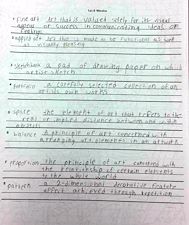 • fine art Art that is valued solely for its visual
appeal or success in communicating ideas or
feelings
• applied art Art that is made to be functional as well
as visually pleasing
• sketchbook a pad of drawing paper on which
artist sketch
• portfolio a carefully selected collection of an
artists own works
• space the element of art that refers to the
real or implied distance between and within
objects
• balance A principle of art concerned with
arranging art elements in an artwork
• proportion the principle of art consisting with
the relationship of certain elements
to the whole
• pattern a 2-dimensional decorative
effect achieved through repetition